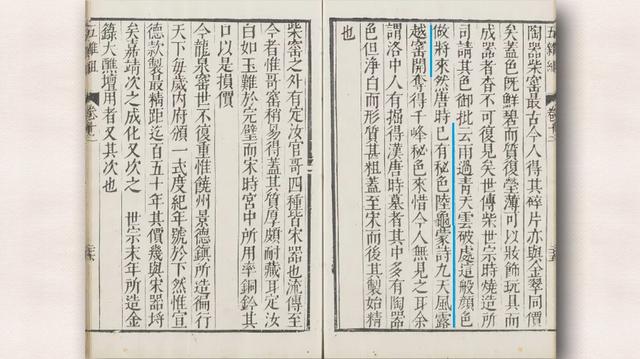 五雜組
陶器柴窰最古今人得其碎片亦與金翠同價
矣蓋色既鮮碧而質復瑩薄可以妝飾玩具而
成器者杳不可復見矣世傳柴世宗時燒造所
司請其色御批云雨過青天雲破處這般顏色
做將來然唐時已有秘色陸龜蒙詩九天風露
越窰開奪得千峰秘色來惜今人無見之耳余
謂洛中人有掘得漢唐時墓者其中多有陶器
色但淨白而形質甚粗蓋至宋而後其製始精
也
柴窰之外有定汝官哥四種皆宋器也流傳至
今者惟哥窰稍易得蓋其質厚頗耐藏耳定汝
白如玉難於完璧而宋時宮中所用率銅鈐其
口以是損價
今龍泉窰世不復重惟饒州景德鎮所造徧行
天下每歲內府頒一式度紀年號於下然惟宣
德款製最精距迄百五十年其價幾與宋器埒
矣嘉靖次之成化又次之 世宗末年所造金
籙大醮壇用者又其次也
五雜組